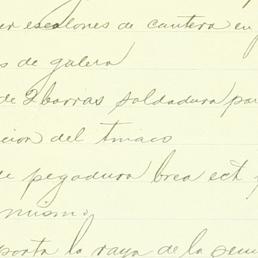 er escalones de cantera en
s de galera
de 2 barras soldadura par
cion del tinaco
de pegadura brea ect
mismo
porta la raya de la sem